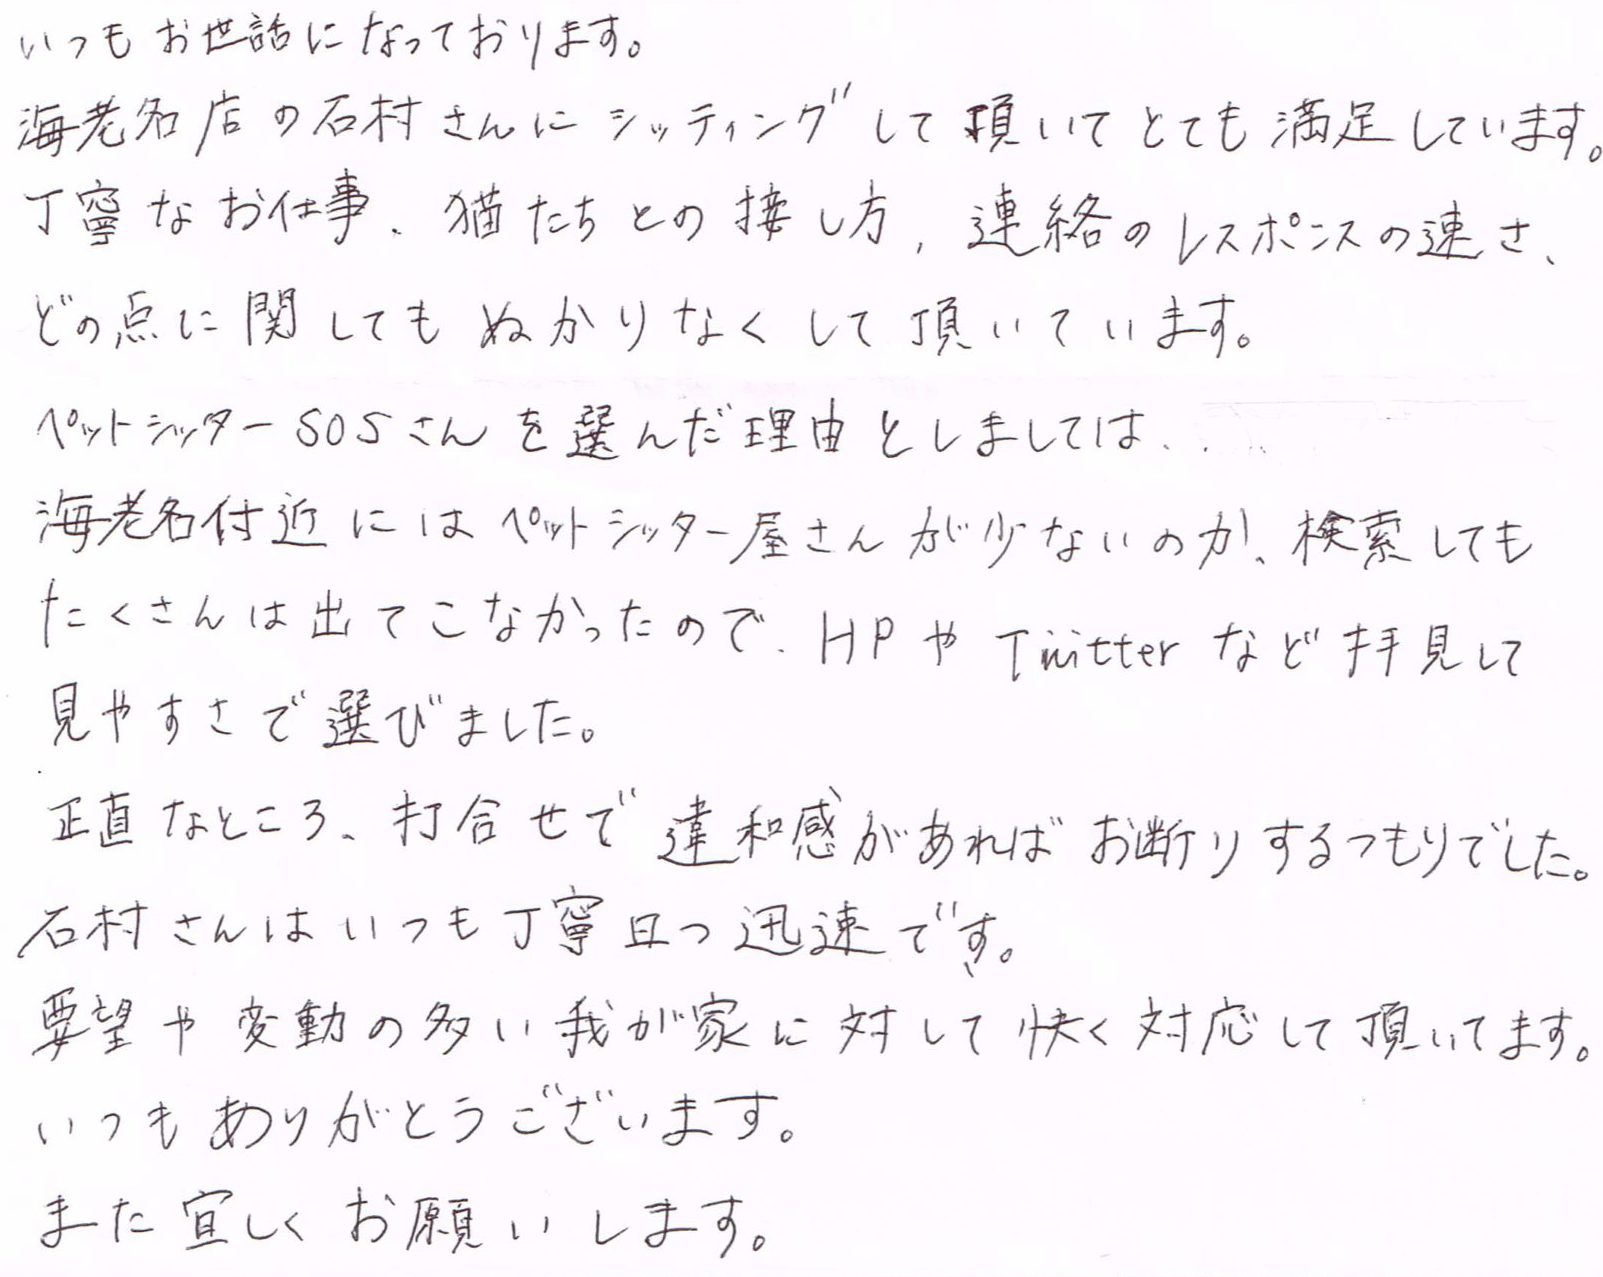 いつもお世話になっております。
海老名店の石村さんにシッティングして頂いてとても満足しています。
丁寧なお仕事、猫たちとの接し方、連絡のレスポンスの速さ、
どの点に関してもぬかりなくして頂いています。
ペットシッターSOSさんを選んだ理由としましては、
海老名付近にはペットシッター屋さんが少ないのか、検索しても
たくさんは出てこなかったので、HPやTwitterなど拝見して
見やすさで選びました。
正直なところ、打合せで違和感があればお断りするつもりでした。
石村さんはいつも丁寧且つ迅速です。
要望や変動の多い我が家に対して快く対応して頂いてます。
いつもありがとうございます。
また宜しくお願いします。